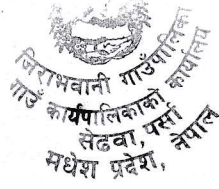 जिराभवानी गाउँपालिका
गाउँ कार्यपालिकाको कार्यालय
सेढवा, पर्सा
मधेश प्रदेश, नेपाल